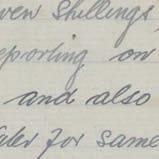 ven Shillings,
eporting on
and also
for same